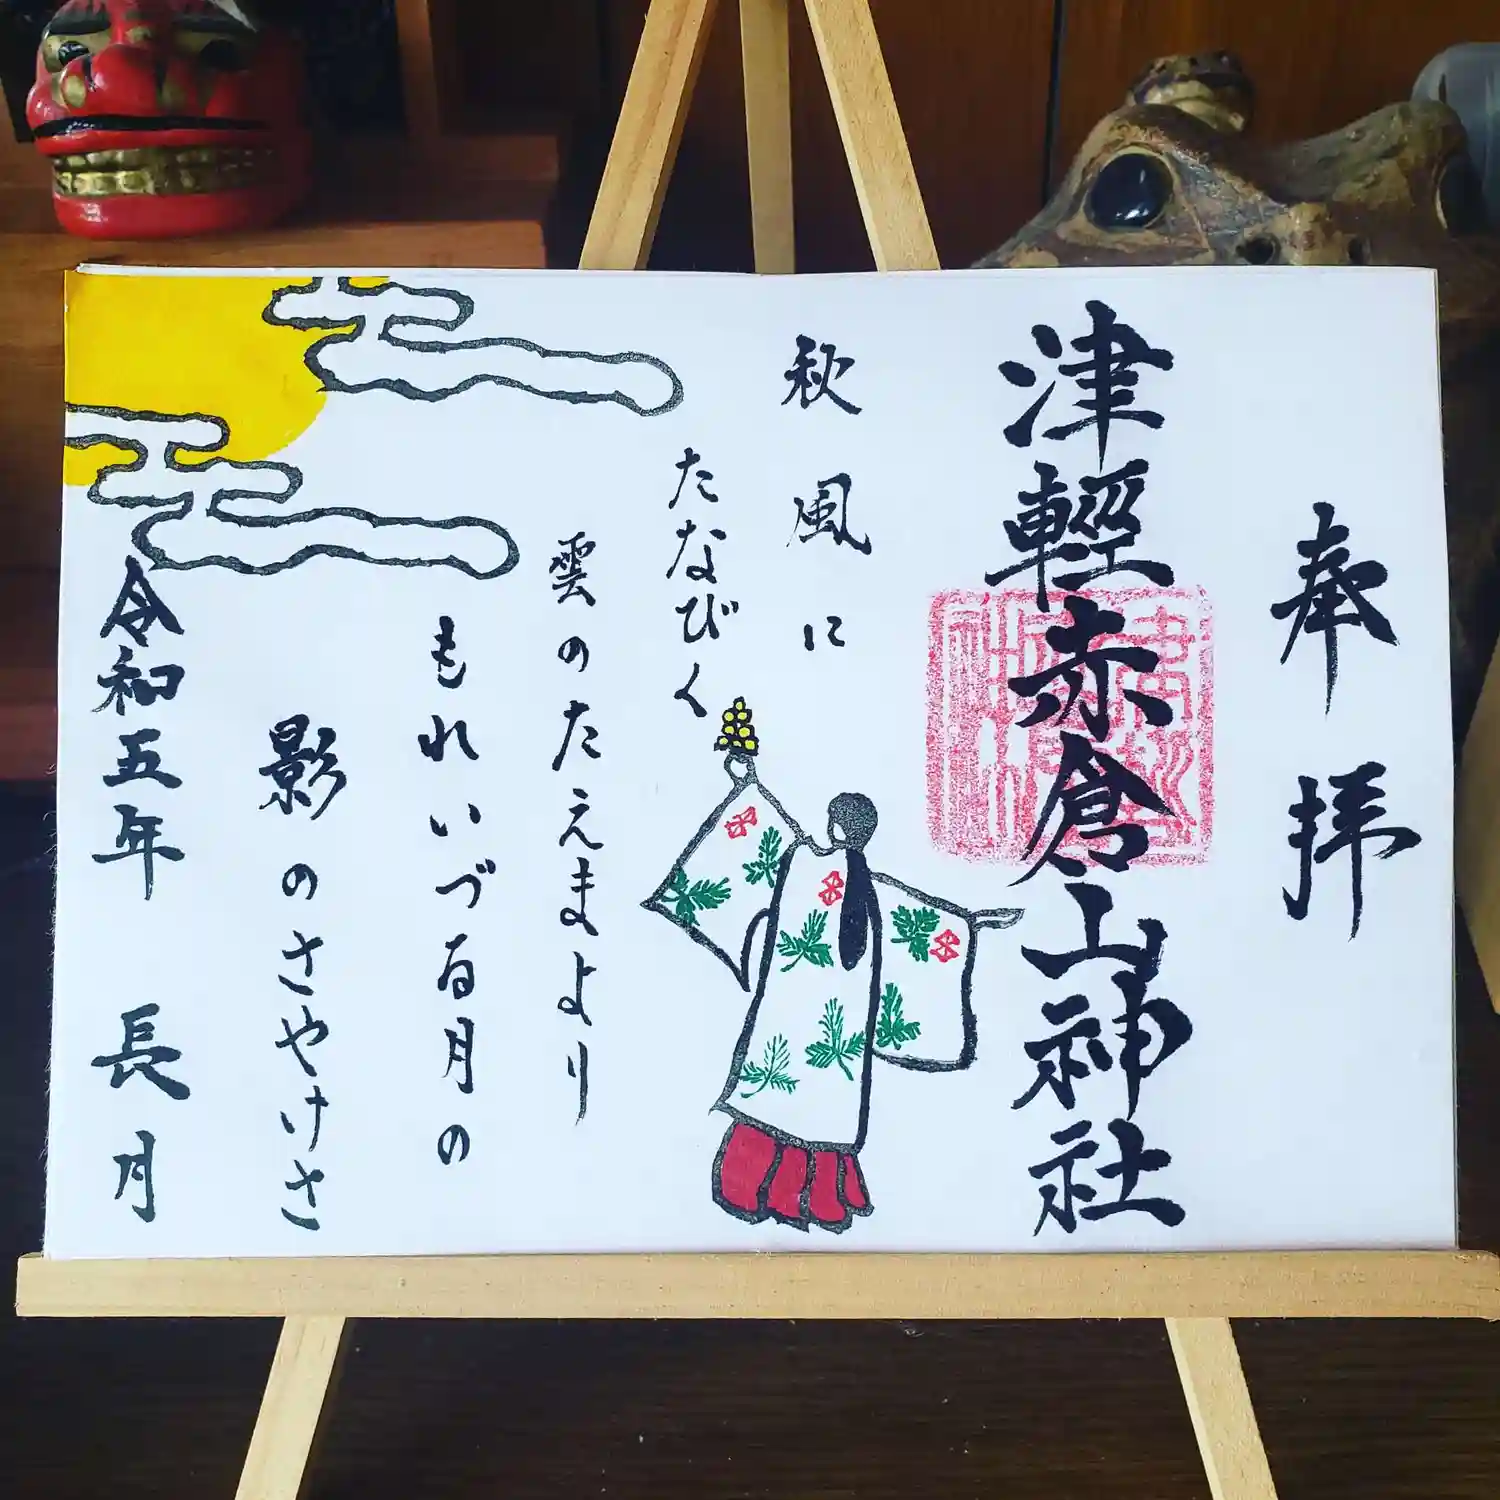 奉拝
津輕赤倉山神社
秋風に
たなびく
雲のたえまより
もれいづる月の
影のさやけさ
令和五年 長月